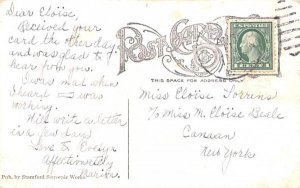 Dear Eloise,
Received your
card the other day
and was glad to
hear from you.
I was mad when
I heard I was
working.
Will write a letter
in a few days
Love to Evelyn
Affectionately
Marion.
Pub. by Stamford Souvenir Works
POST CARD
THIS SPACE FOR ADDRESS
Miss Eloïse Torrens
To Miss M. Eloïse Beale
Canaan
New York